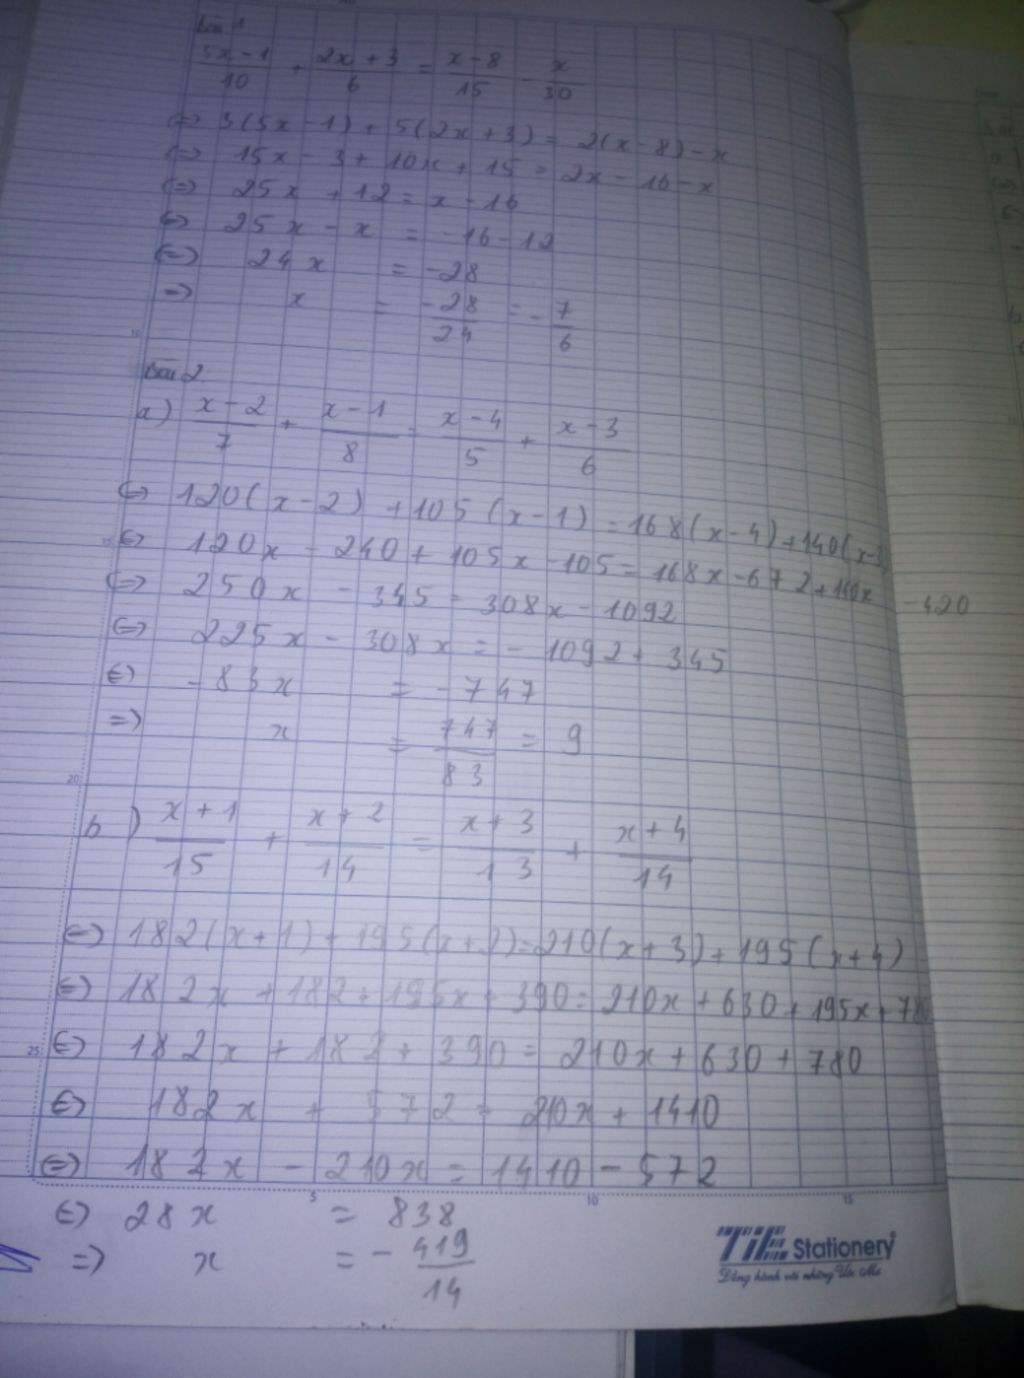 Bài 1
5x-1/10 + 2x+3/6 = x-8/15 - x/30
<=> 3(5x-1) + 5(2x+3) = 2(x-8) - x
<=> 15x - 3 + 10x + 15 = 2x - 16 - x
<=> 25x + 12 = x - 16
<=> 25x - x = -16 - 12
<=> 24x = -28
=> x = -28/24 = -7/6
Bài 2
a) x-2/7 + x-1/8 = x-4/5 + x-3/6
<=> 120(x-2) + 105(x-1) = 168(x-4) + 140(x-3
<=> 120x - 240 + 105x - 105 = 168x - 672 + 140x - 420
<=> 250x - 345 = 308x - 1092
<=> 225x - 308x = -1092 + 345
<=> -83x = -747
=> x = 747/83 = 9
b) x+1/15 + x+2/14 = x+3/13 + x+4/14
<=> 182(x+1) + 195(x+2) = 210(x+3) + 195(x+4)
<=> 182x + 182 + 195x + 390 = 210x + 630 + 195x + 780
<=> 182x + 182 + 390 = 210x + 630 + 780
<=> 182x + 572 = 210x + 1410
<=> 182x - 210x = 1410 - 572
<=> 28x = 838
=> x = -419/14
10
15
20
25
5 10 15
TiE Stationery
Đồng hành với những Ước Mơ